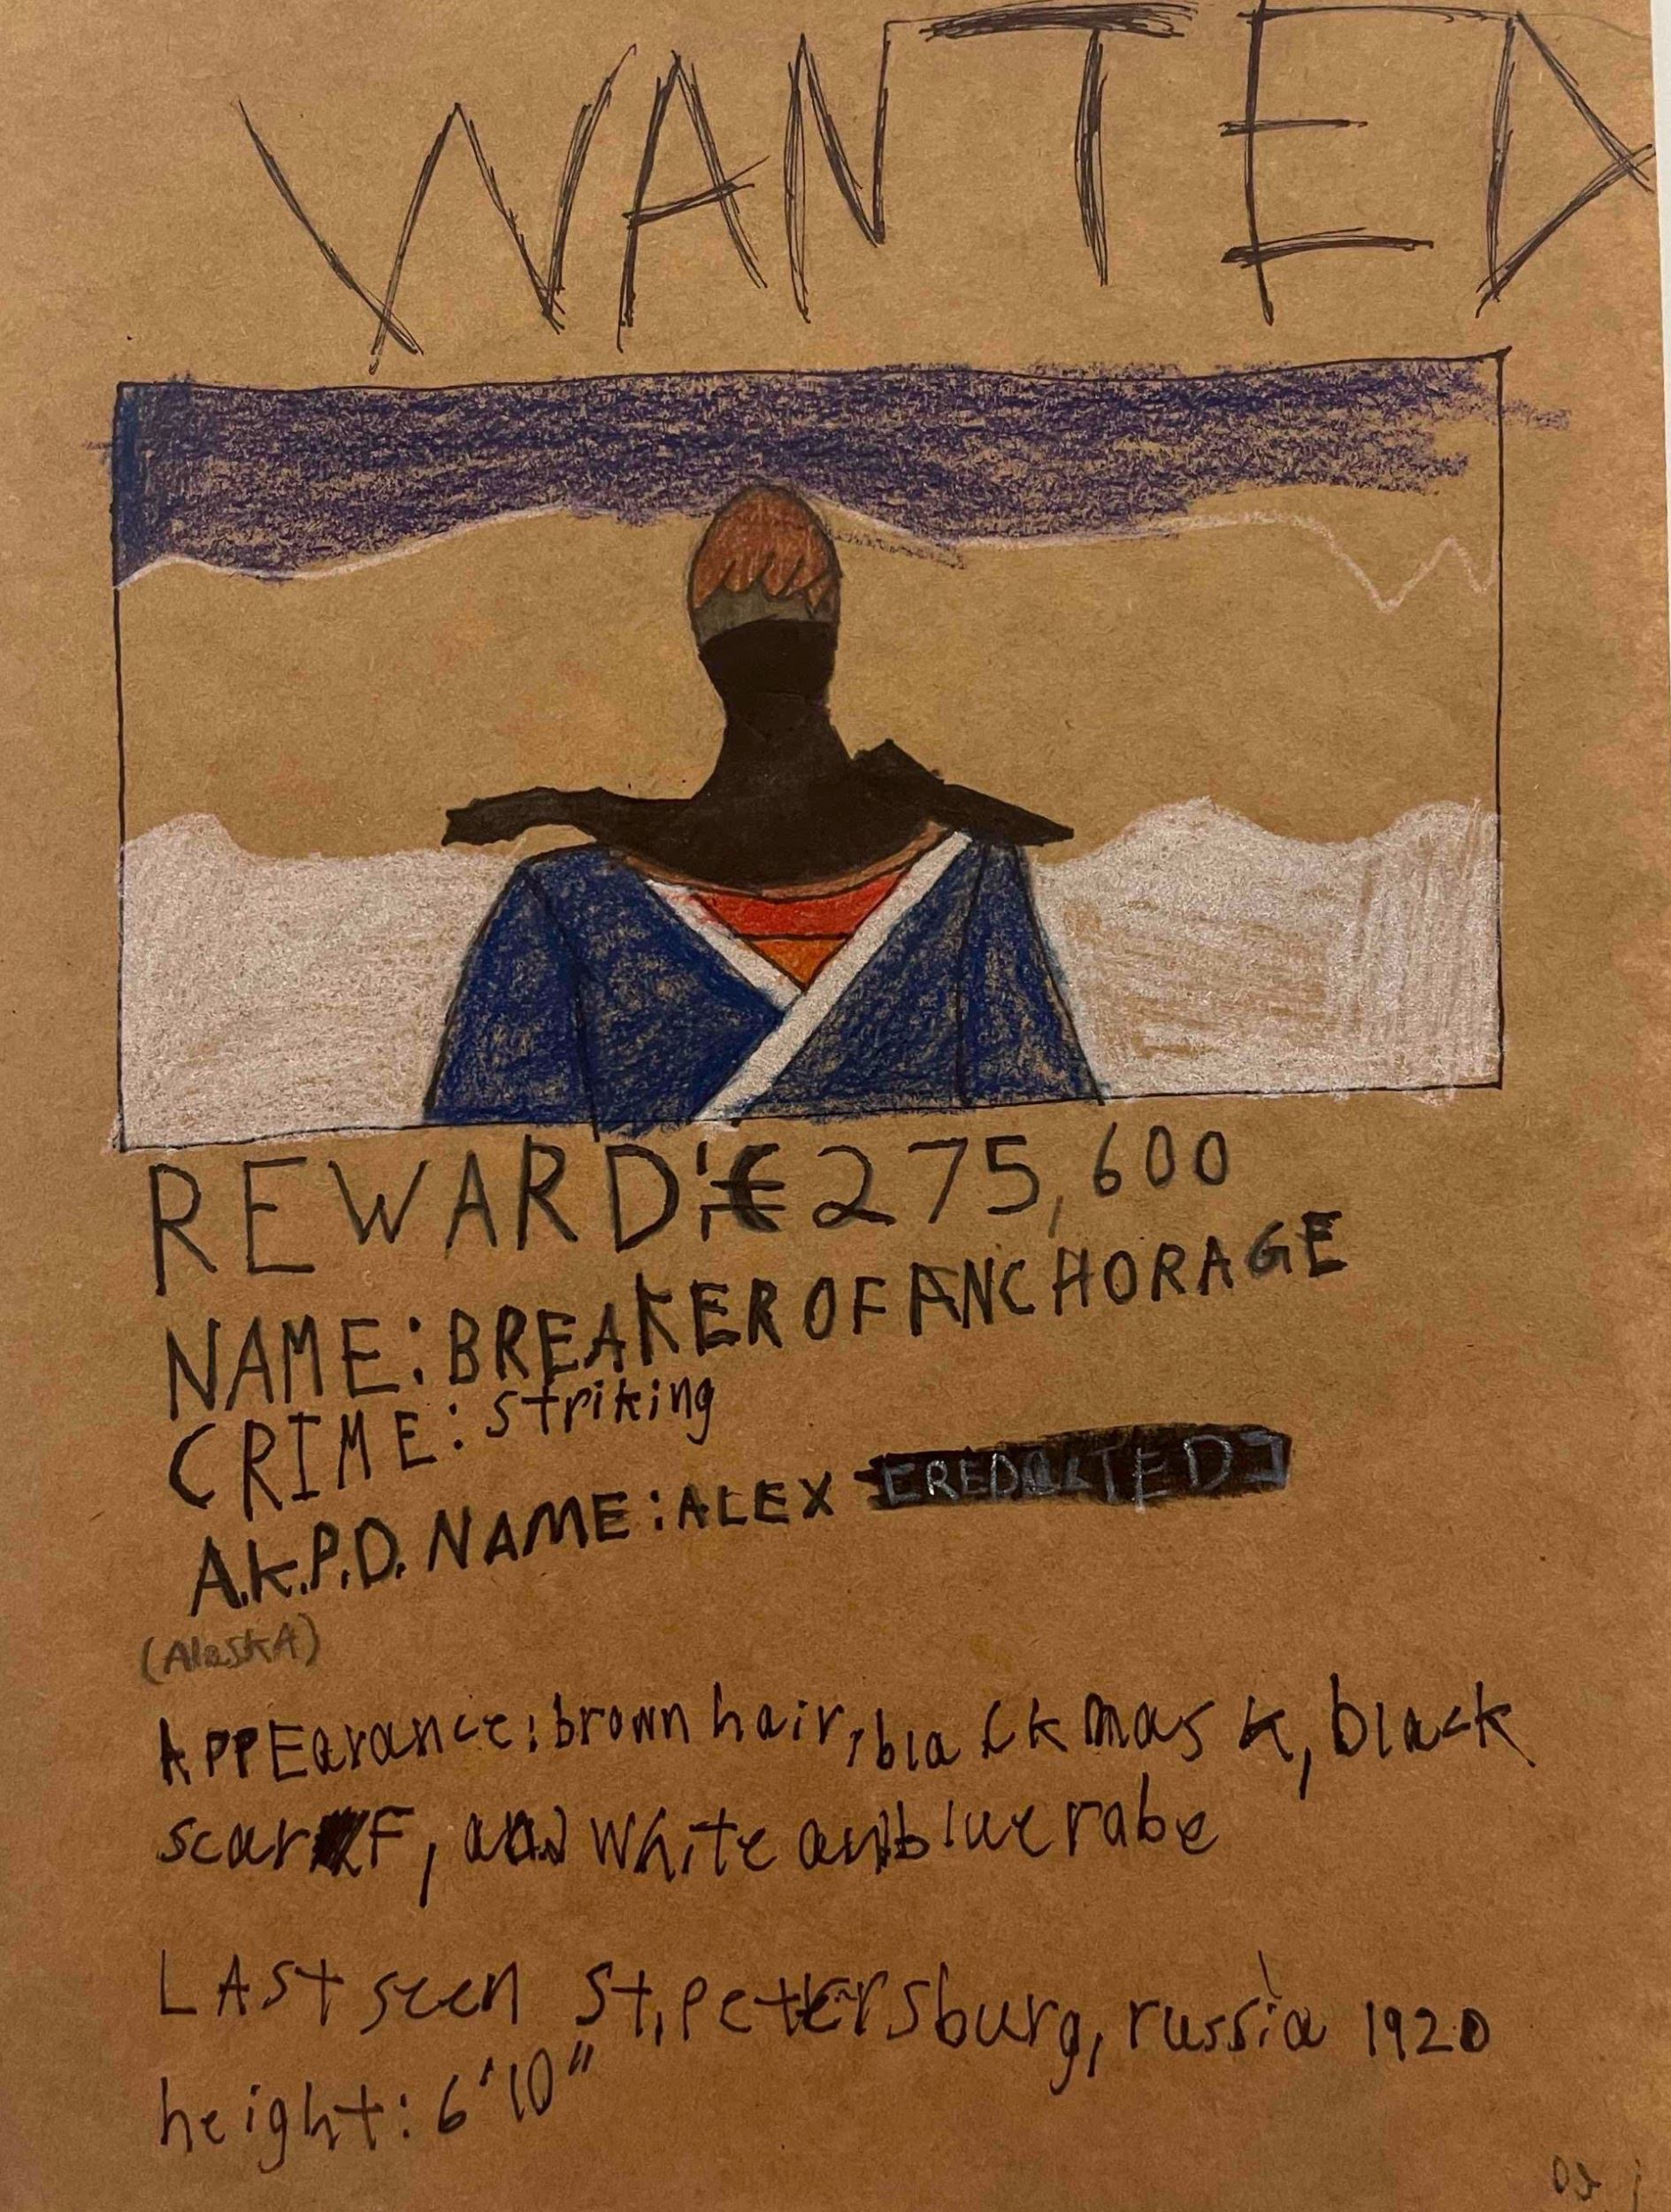 WANTED
REWARD:€275,600
NAME:BREAKER OF ANCHORAGE
CRIME: striking
A.K.P.D. NAME:ALEX [REDACTED]
(AlaskA)
APPEarance: brown hair, black mask, black
scarF, and white and blue robe
LASt seen St. Petersburg, russia 1920
height: 6'10"